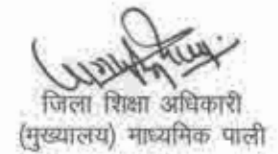 जिला शिक्षा अधिकारी
(मुख्यालय) माध्यमिक पाली